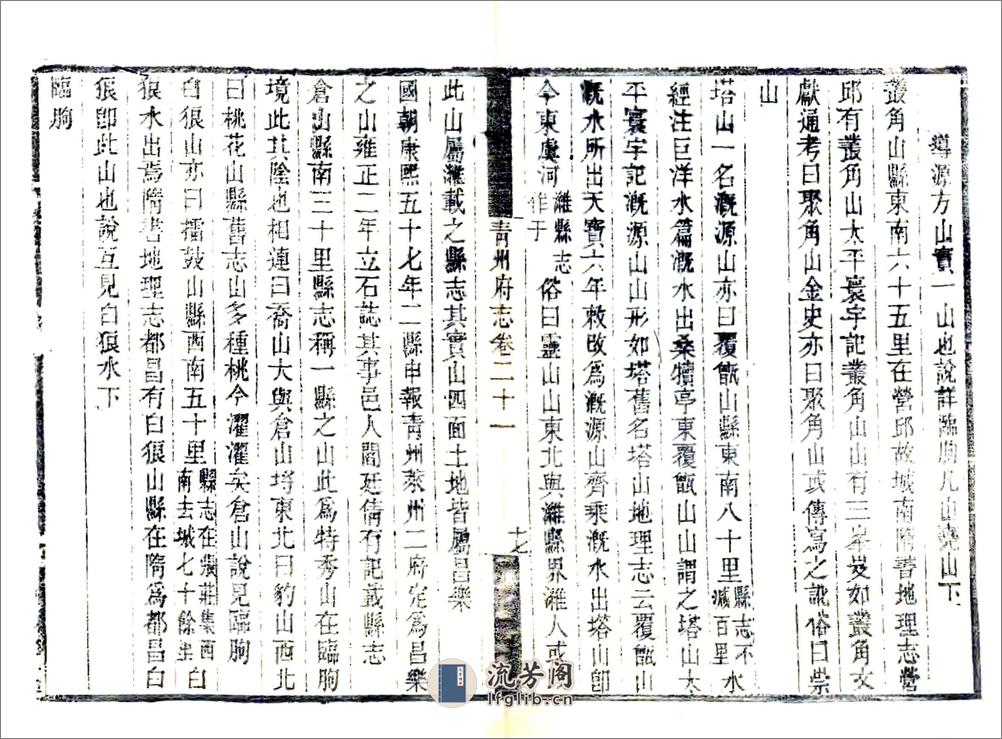 導源方山實一山也說詳臨朐凡山堯山下
叢角山縣東南六十五里在營邱故城南隋書地理志營
邱有叢角山太平寰宇記叢角山山有三峯岌如叢角文
獻通考曰聚角山金史亦曰聚角山或傳寫之訛俗曰崇
山
塔山一名溉源山亦曰覆甑山縣東南八十里縣志不滅百里水
經注巨洋水篇溉水出桑犢亭東覆甑山山謂之塔山太
平寰宇記溉源山山形如塔舊名塔山地理志云覆甑山
溉水所出天寶六年敕改為溉源山齊乘溉水出塔山卽
今東虞河濰縣志作于俗曰靈山山東北與濰縣界濰人或
青州府志卷二十一
十七
此山屬濰載之縣志其實山四面土地皆屬昌樂
國朝康熙五十七年二縣申報青州萊州二府定為昌樂
之山雍正二年立石誌其事邑人閻廷倩有記載縣志
倉山縣南三十里縣志稱一縣之山此為特秀山在臨朐
境此其陰也相連曰喬山大與倉山埓東北曰豹山西北
曰桃花山縣舊志山多種桃今濯濯矣倉山說見臨朐
白狼山亦曰擂鼓山縣西南五十里縣志在張莊集西南去城七十餘里白
狼水出焉隋書地理志都昌有白狼山縣在隋為都昌白
狼卽此山也說互見白狼水下
臨朐
流芳阁
lfglib.cn